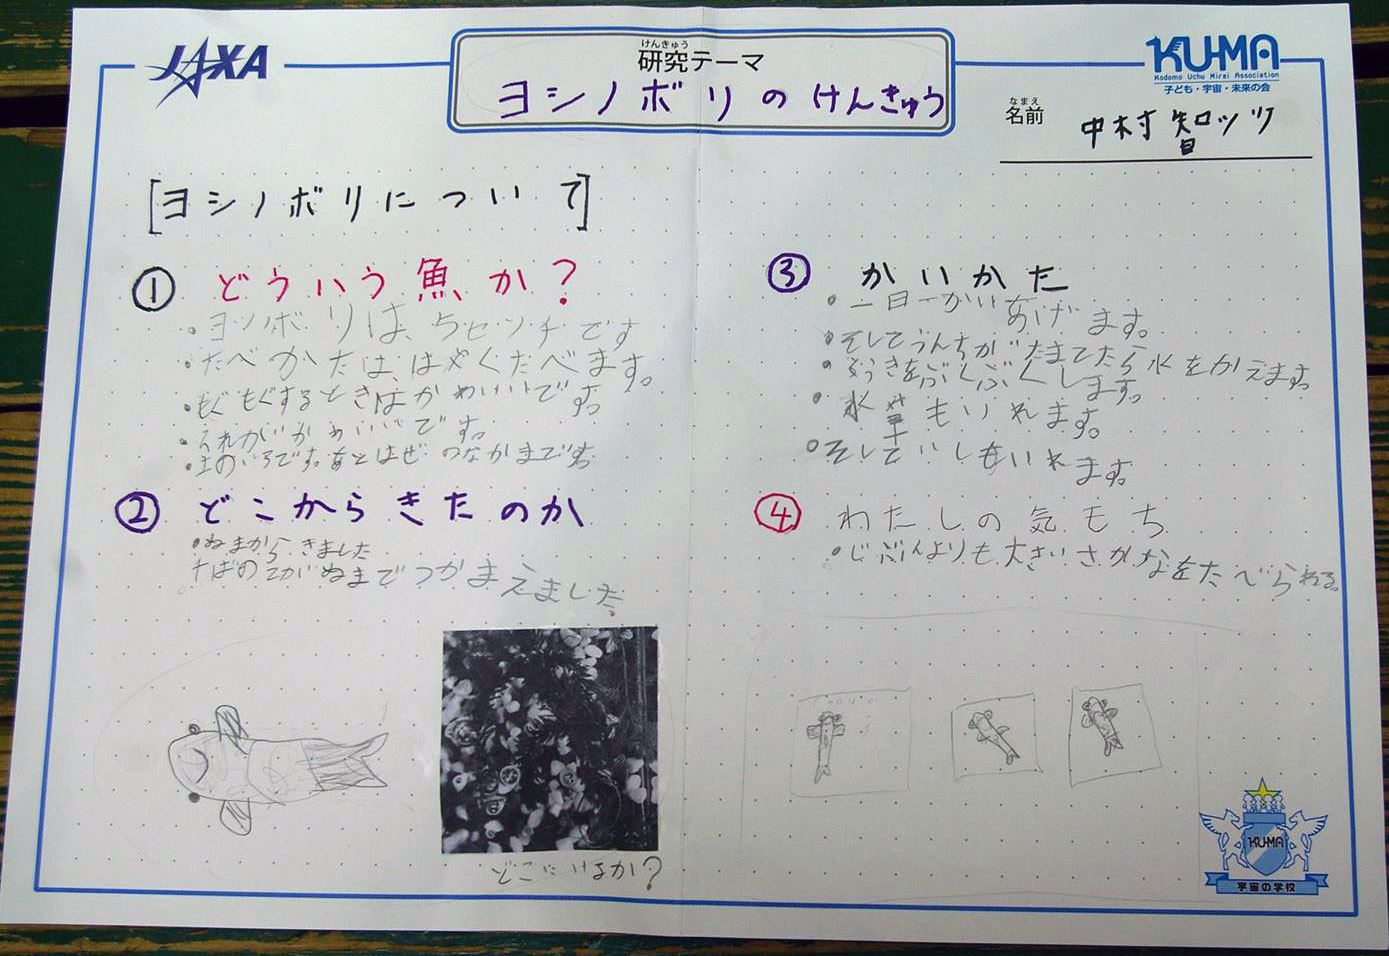 JAXA
けんきゅう
研究テーマ
ヨシノボリのけんきゅう
KU-MA
Kodomo Uchu Mirai Association
子ども・宇宙・未来の会
なまえ
名前
中村
[ヨシノボリについて]
① どういう魚か?
・ヨシノボリは、5センチです
・たべかたは、はやくたべます。
・もぐもぐするときはかわいいです。
・それがいかわいいです。
・土のいろです。あとはぜのなかまです。
② どこからきたのか
・ぬまからきました
ぬまでつかまえました。
どこにいるか?
③ かいかた
・一日一かいあげます。
・そしてうんちがたまてたら水をかえます。
・くうきをぶくぶくします。
・水草もいれます。
・そしていしもいれます。
④ わたしの気もち
・じぶんよりも大きいさかなをたべられる。
KU-MA
宇宙の学校